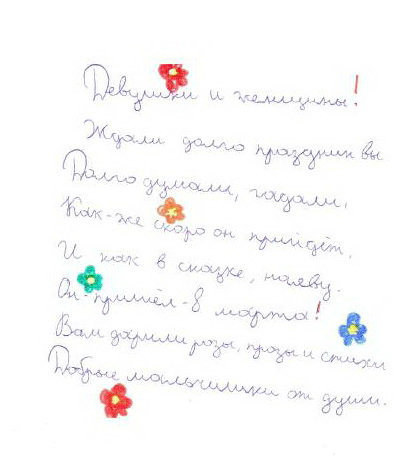 Девушки и женщины!
Ждали долго праздник вы
Долго думали, гадали,
Как-же скоро он прийдёт,
И как в сказке, наяву.
Он-пришёл-8 марта!
Вам дарили розы, прозы и стихи
Добрые мальчишки от души.